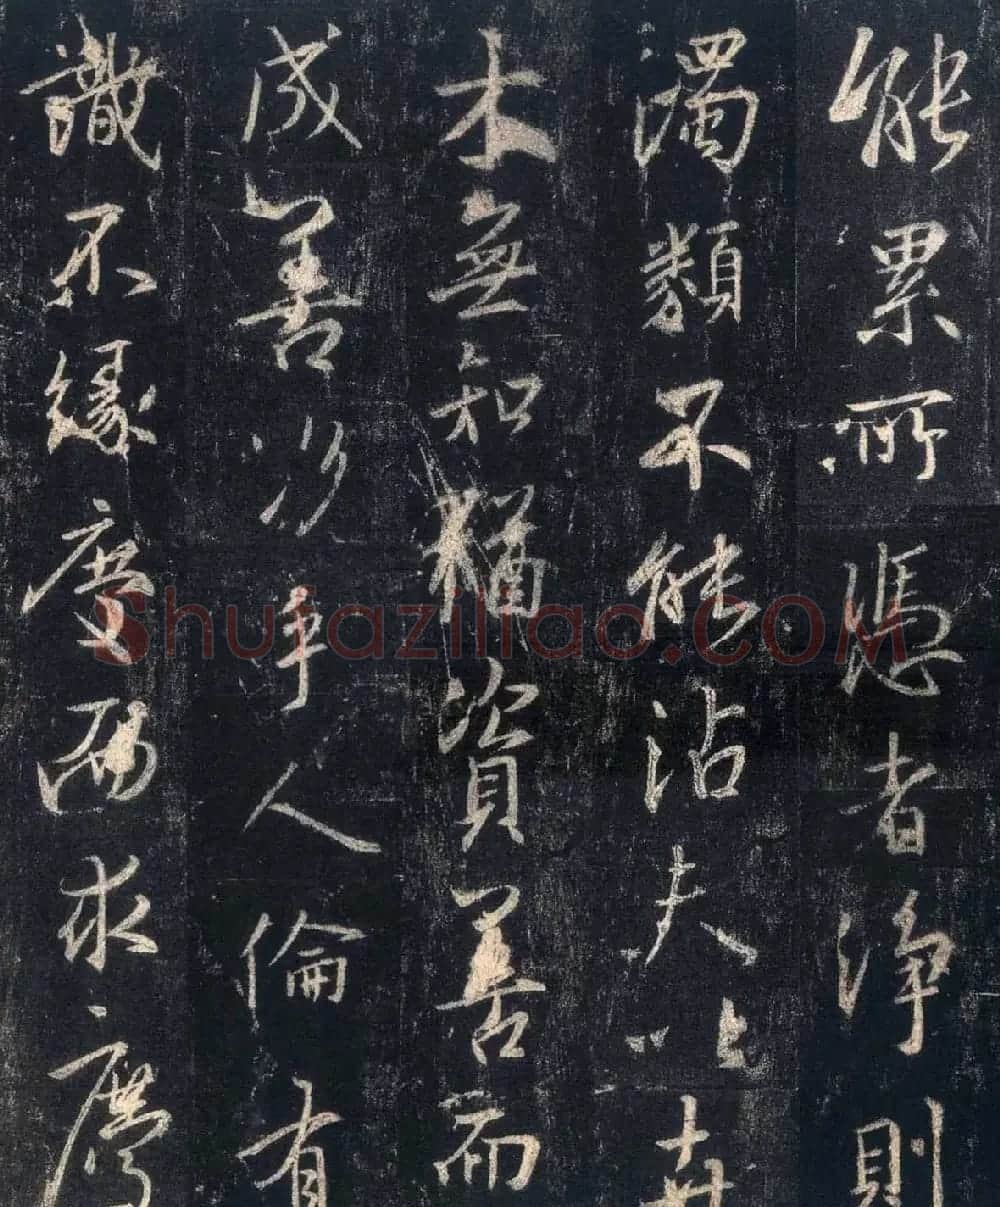 能累所憑者淨則
濁類不能沾夫以卉
木無知猶資善而
成善況乎人倫有
識不緣慶而求慶
Shufaziliao.COM